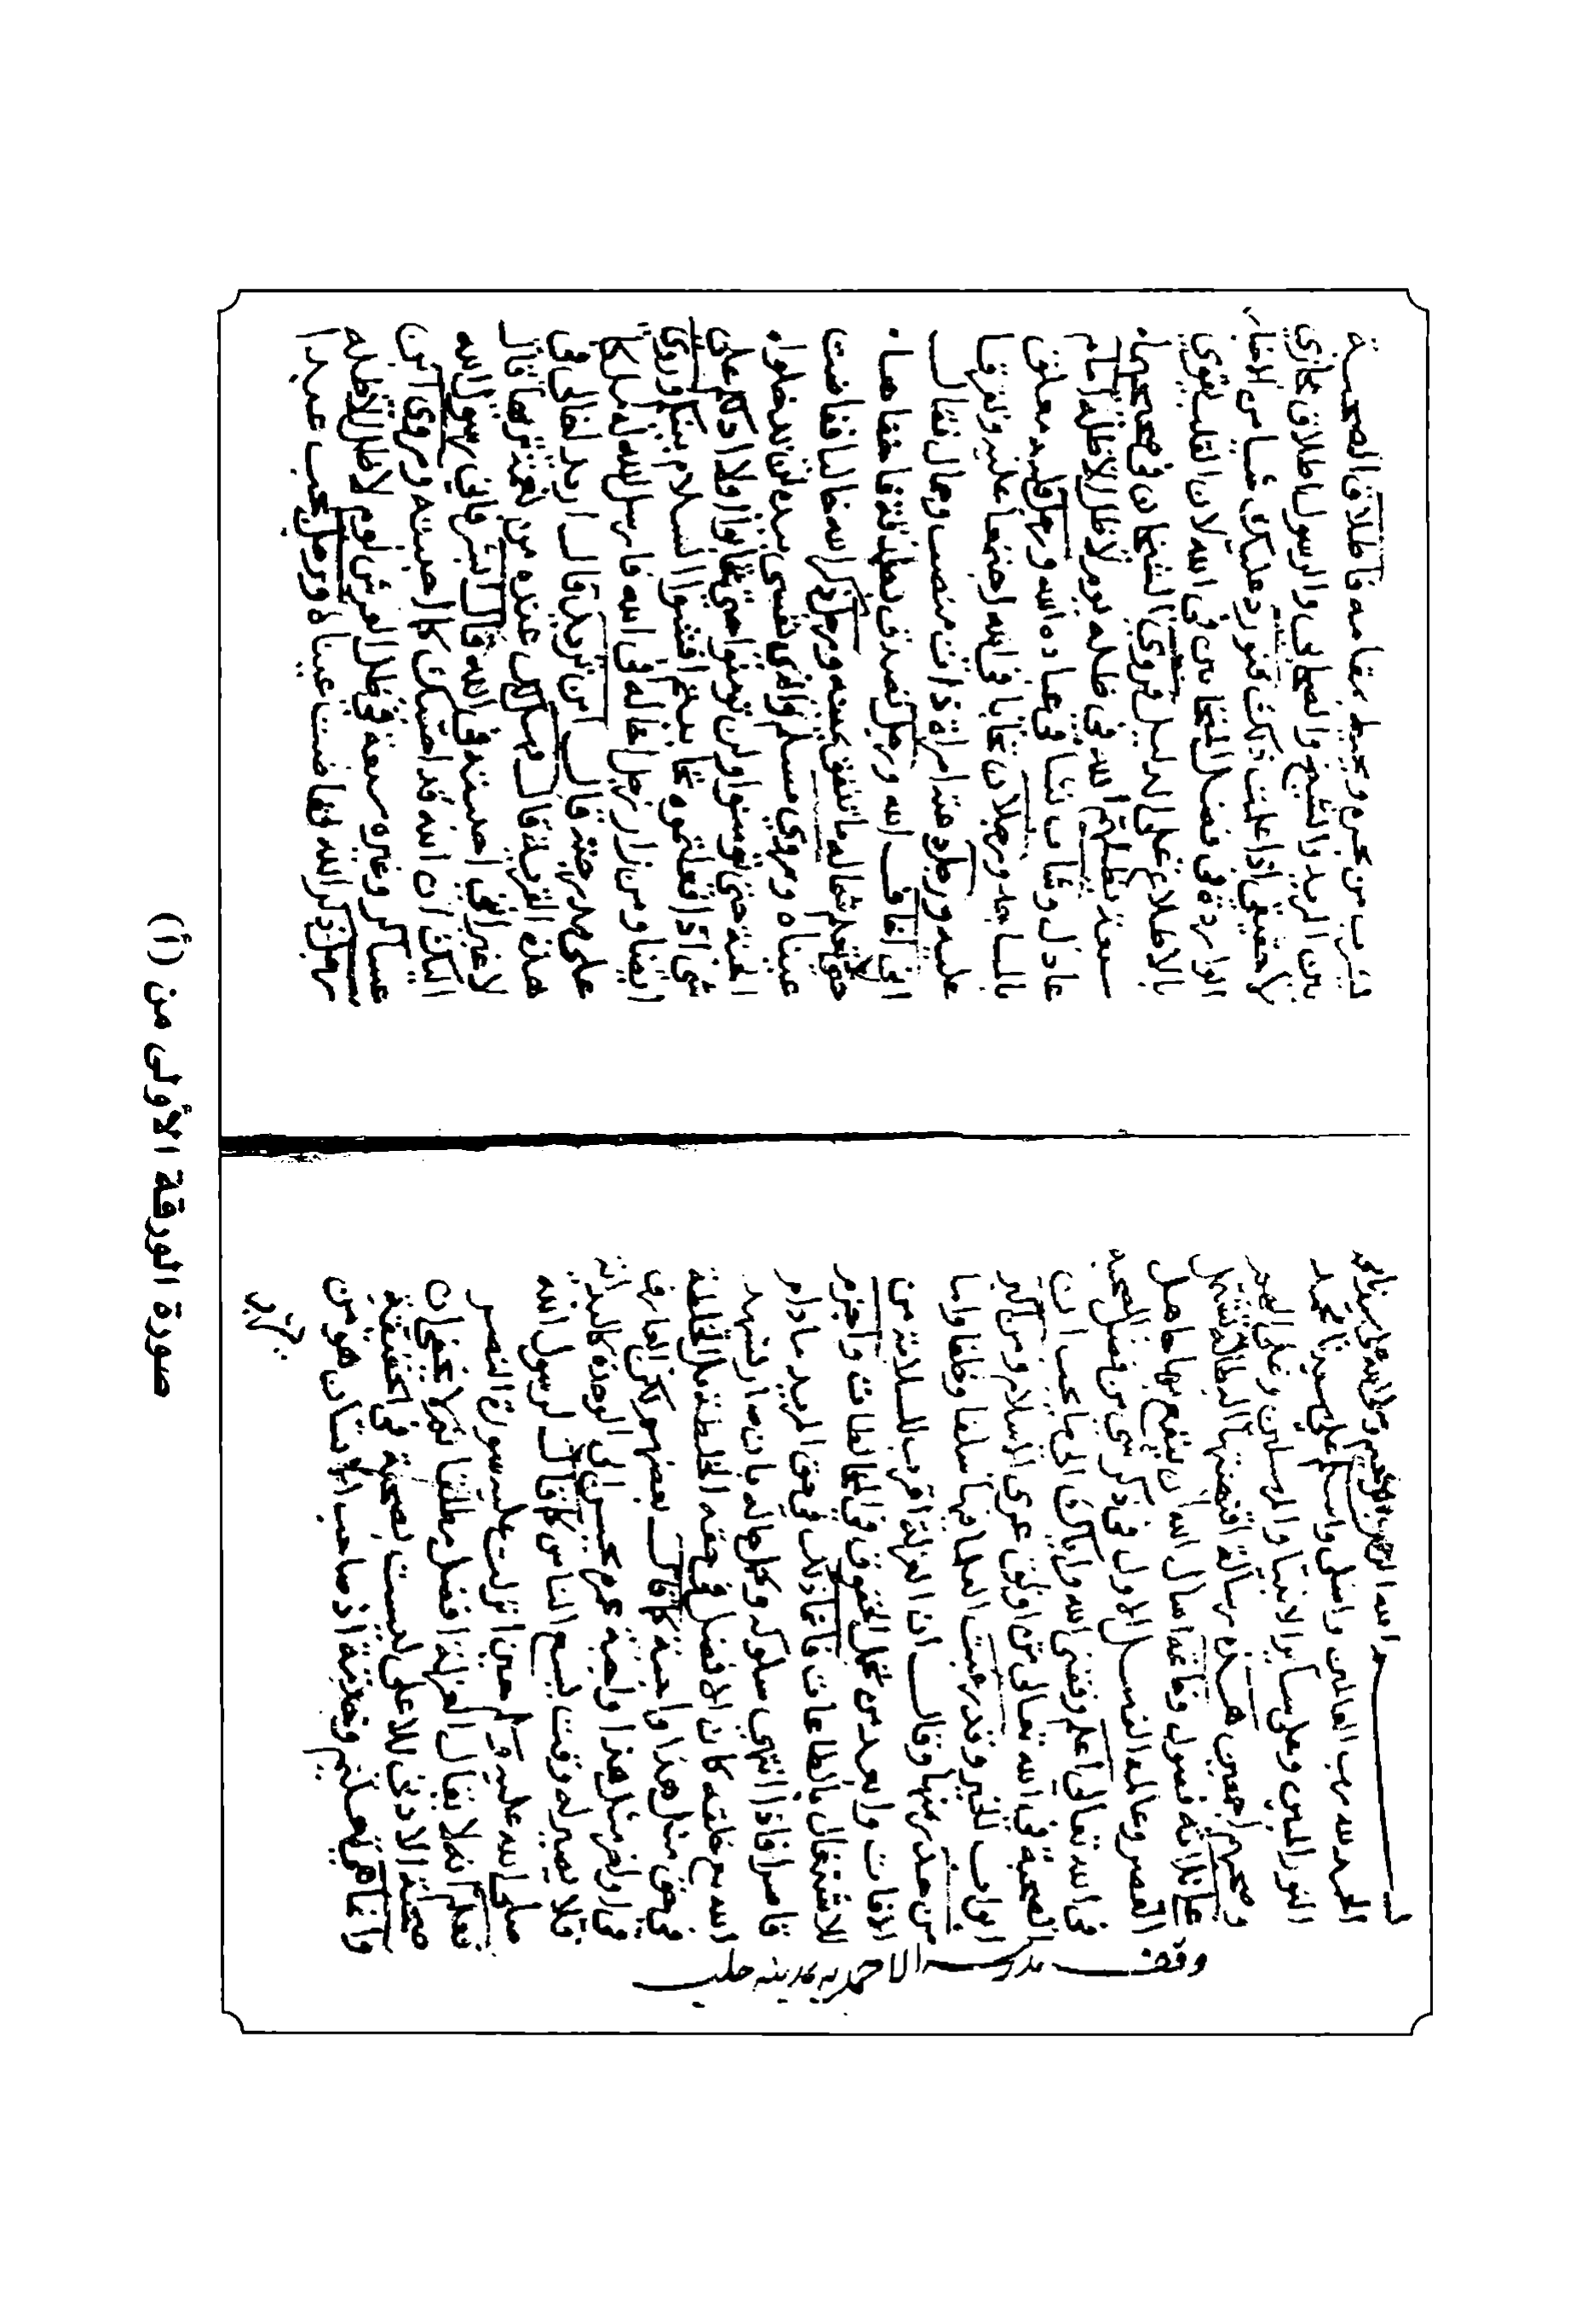 بسم الله الرحمن الرحيم وصلى الله على سيدنا
الحمد لله رب العالمين واصلى واسلم على سيدنا محمد
النور المبين وعلى ساير الانبيا والمرسلين وعلى
وصحبهم اجمعين هذه رسالة
ثلاثة فصول وخاتمة اسال الله ان ينفع بها
الفصل الاول فى ذكر شى من فضل الصحبة
فى الله تعالى اعلم وفقنى الله واياك الى ما يحب ان
الصحبة فى الله تعالى من اوثق عرى الاسلام ومن اكبر
ابواب الخير وقد رغبت العلما فيها سلفا وخلفا واما
من حذر منها وقال ان العزلة اقرب للسلامة من
الافات وابعد من تحمل الحقوق فى المخالطات واجزم
للاشتغال بالطاعات فانما ذلك فى حق المريد ما دام
قاصرا فاذا انتهى سلوكه وكمل حاله بان صار يشهد
الله مع خلقه كان الافضل فى حقه الخلطة بل الخلطة
فى حق مثل هذا واجبة كما قال بعضهم لكن العارف
فرار الغر مثل هذا واحبه
فلا يصير له وقت يسع الناس كما قال لرسول الله
صلى الله عليه وسلم حين انزلت عليه سورة النصر
فعلم انه لا يقال العزلة افضل مطلقا
صحبة الادنى للاعلى ليست بصحبة فى الحقيقة
وانما هى تعليم وخدمة اذ صاحب الانسان هو من
يشرب من بحره ويحيط بمقامه فاطلاق الصحبة
بين المريد والشيخ والصحابى والرسول اطلاق مجازى
لا حقيقى اذا علمت ذلك فنورد عليك شيا من الاخبار
الواردة فى فضل المتحابين فى الله لان القلب يقوى
بالاطلاع على الدليل فروى الشيخان فى صحيحيهما
سبعة يظلهم الله فى ظله يوم لا ظل الا ظله امام
عادل وشاب نشا فى عبادة الله ورجل قلبه معلق
بالمساجد ورجلان تحابا فى الله اجتمعا عليه وتفرقا
عليه ورجل دعته امراة ذات منصب وجمال فقال
انى اخاف الله ورجل تصدق بصدقة فاخفاها
حتى لا تعلم شماله ما تنفق يمينه ورجل ذكر الله خاليا ففاضت
عيناه وروى مسلم والذى نفسى بيده لن تدخلوا
الجنة حتى تومنوا ولن تومنوا حتى تحابوا اولا ادلكم على
شى اذا فعلتموه تحاببتم افشوا السلام بينكم وروى
ايضا ومن زار رجل اخا له فى الله فارسل الله له ملكا
على مدرجته قال اين تريد قال اريد اخا لى فى
هذه القرية قال هل لك عنده من نعمة تربها قال
لا غير انى احببته فى الله قال فانى رسول الله
اليك ان الله قد احبك كما احببته وروى ابن
عساكر وغيره سبعة فى ظل العرش يوم لا ظل الا ظله
رجل ذكر الله ففاضت عيناه ورجل يحب عبدا
وقف مدرسة الاحمديه بمدينه حلب
صورة الورقة الأولى من (أ)